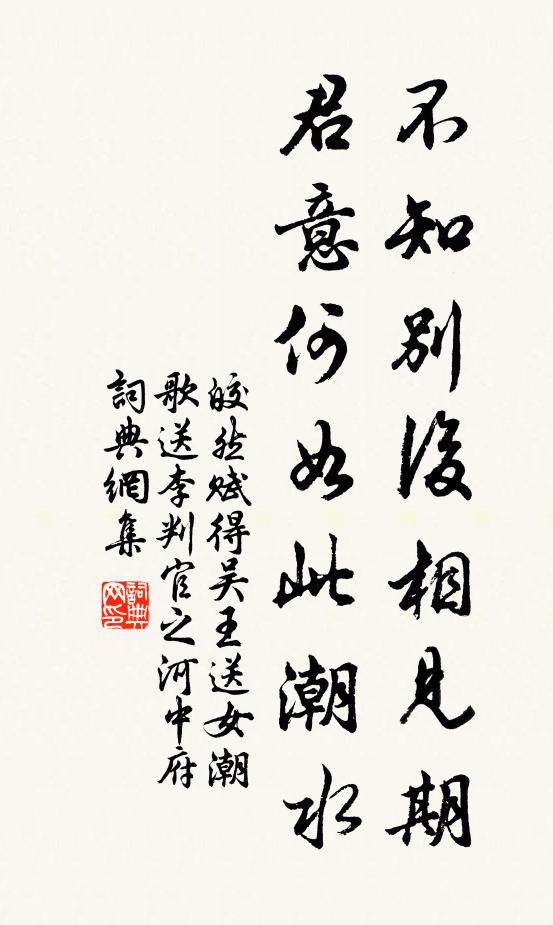 不知別後相見期
君意何如此潮水
皎然賦得吴王送女潮
歌送李判官之河中府
詞典網集
詞典
网印